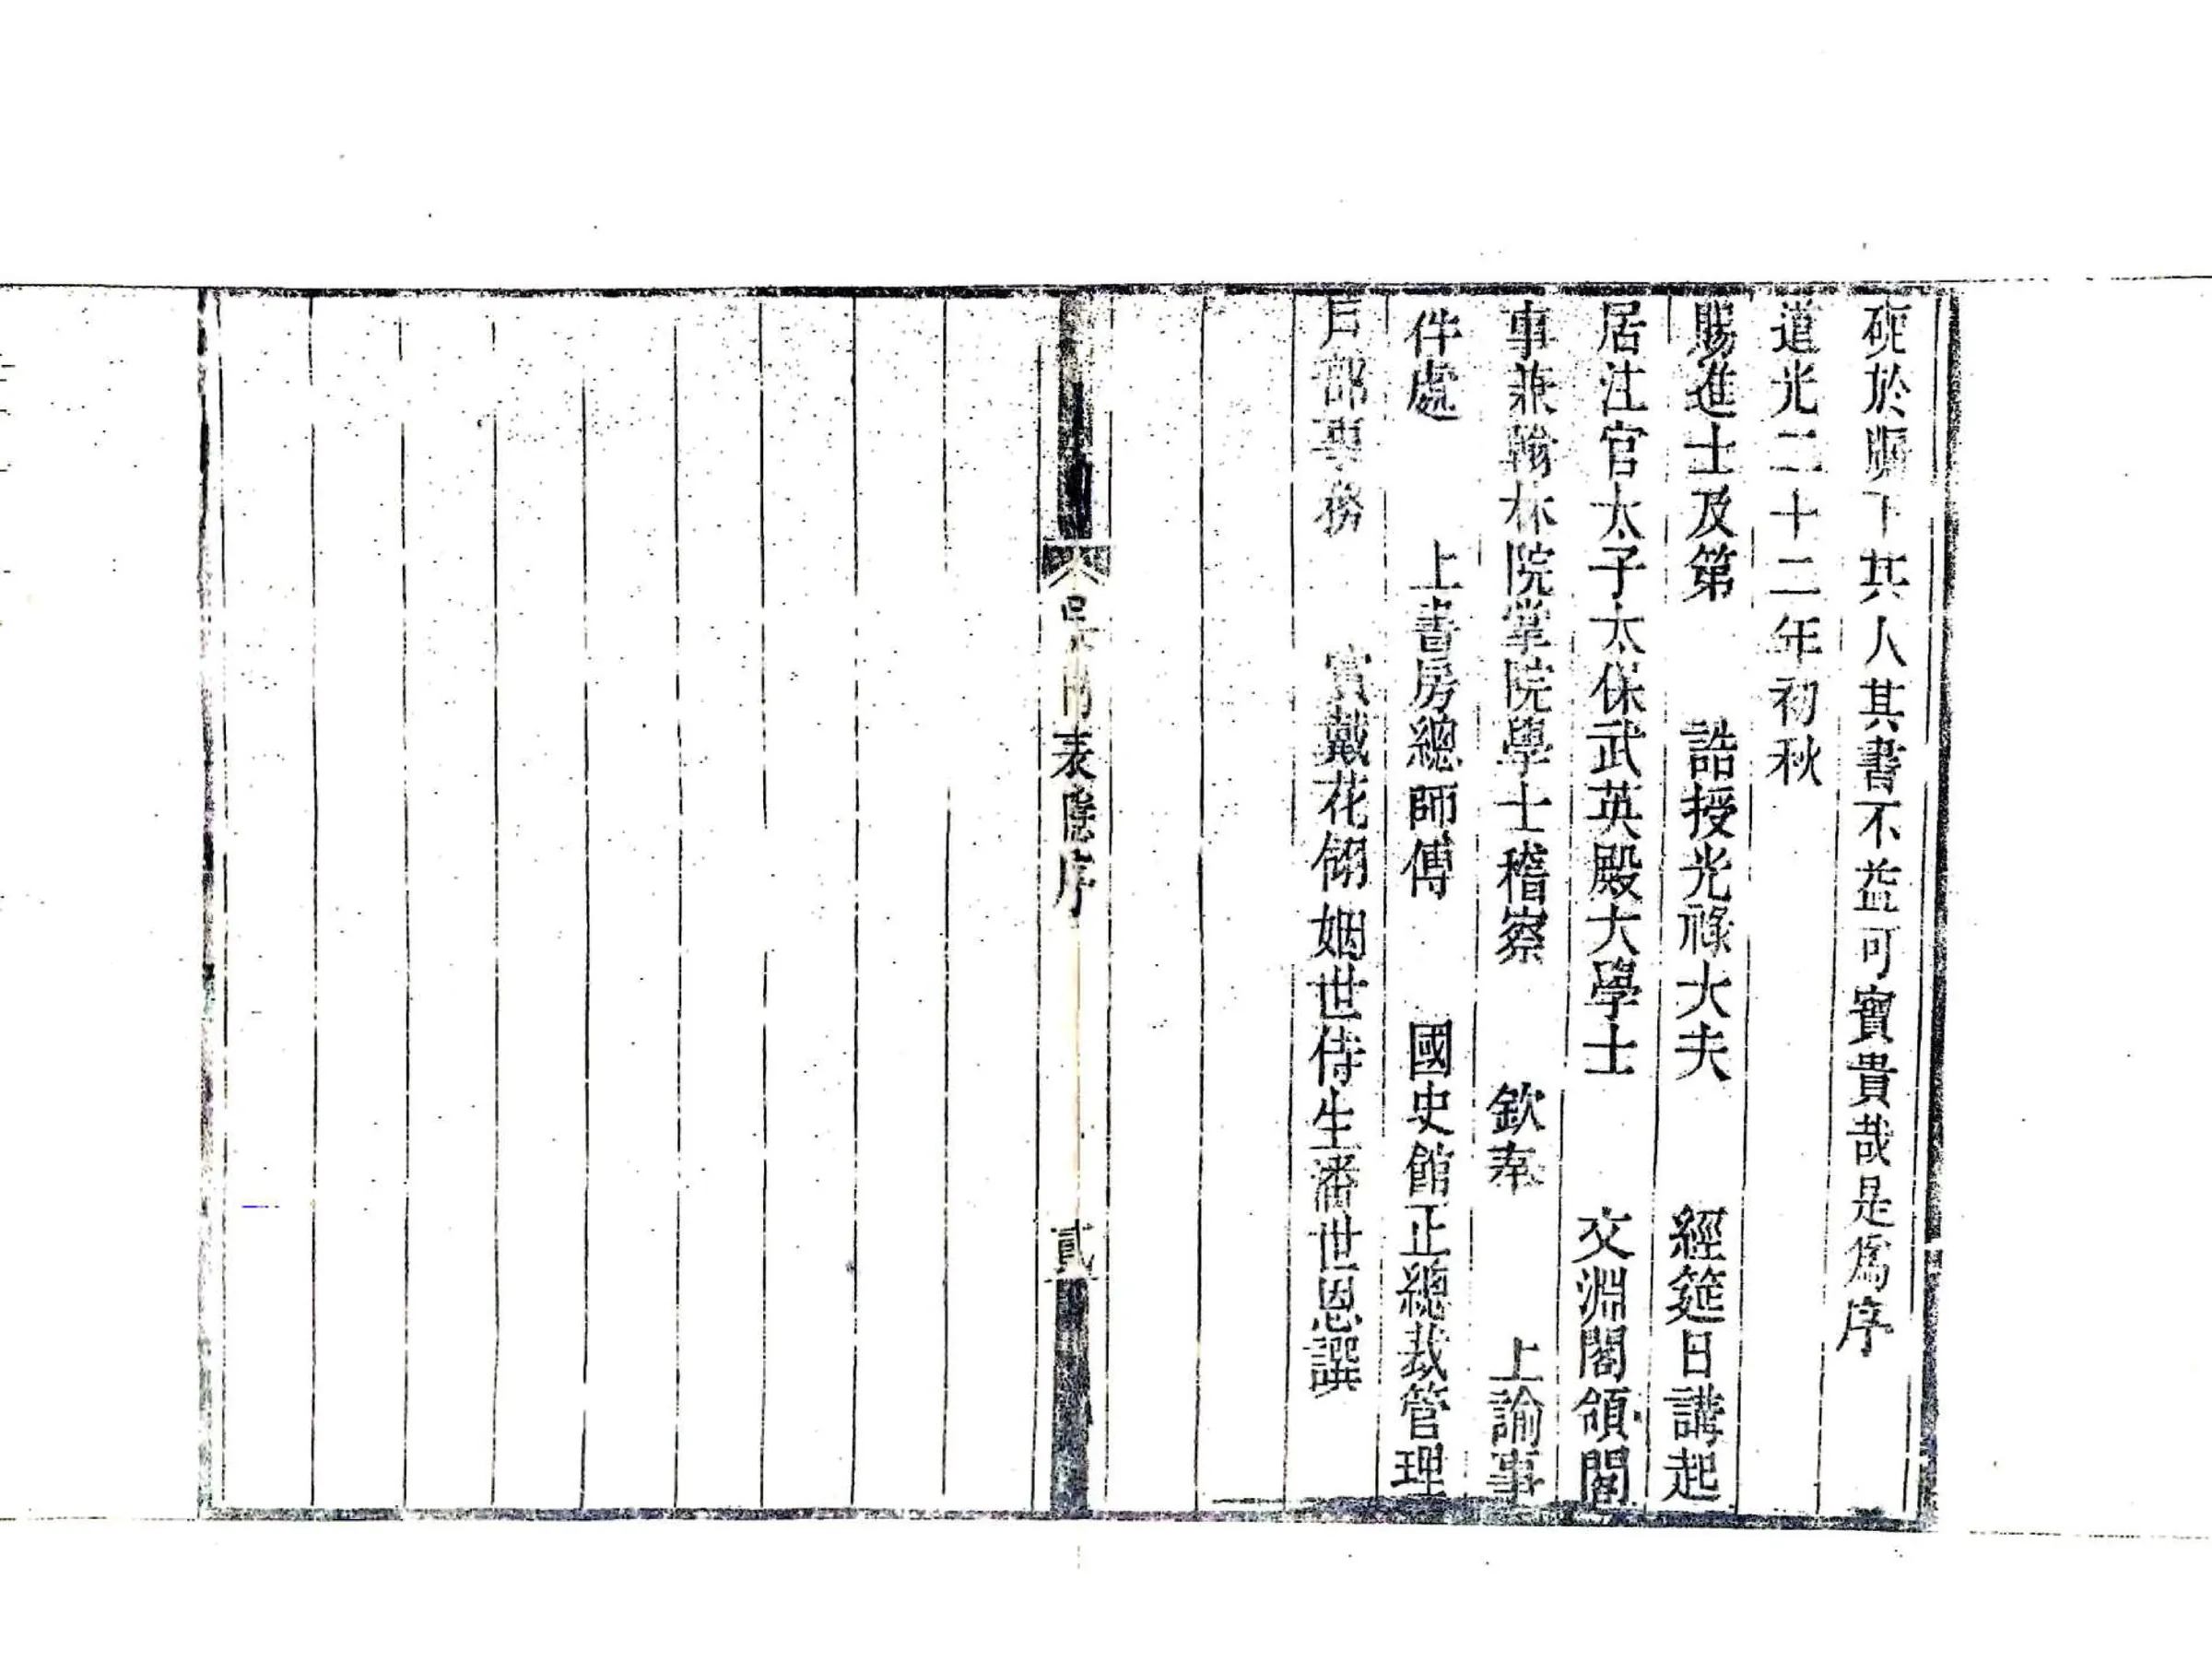 硯於牖下其人其書不益可寶貴哉是爲序
道光二十二年初秋
賜進士及第 誥授光祿大夫 經筵日講起
居注官太子太保武英殿大學士 文淵閣領閣
事兼翰林院掌院學士稽察 欽奉 上諭事
件處 上書房總師傅 國史館正總裁管理
戶部事務 賞戴花翎姻世侍生潘世恩譔
表應序
貳